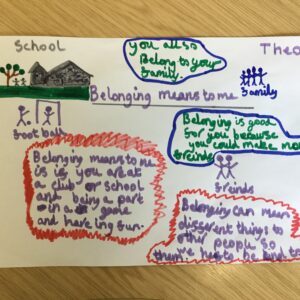 School
Theo
you all so
Belong to your
family.
family
Belonging means to me
foot ball
Belonging is good
for you because
you could make more
friends
Belonging means to me
is if you are at
a club or school
and being a part
in a game
and haveing fun.
freinds
Belonging can mean
different things to
other people so
we have to be kind to